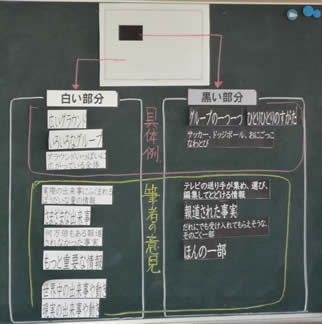 白い部分
黒い部分
広いグラウンド
いろいろなグループ
グラウンドいっぱいに
広がっている全体
具体例
グループの一つ一つ ひとりひとりのすがた
サッカー、ドッジボール、おにごっこ
なわとび
実際の出来事にふくまれる
ぼう大な量の情報
さまざまな出来事
何万倍もある報道
されなかった事実
もっと重要な情報
世界中の出来事や動き
現実の出来事や動き
筆者の意見
テレビの送り手が集め、選び、
編集してとどける情報
報道された事実
だれにでも受け入れてもらえそうな、
そのごく一部
ほんの一部